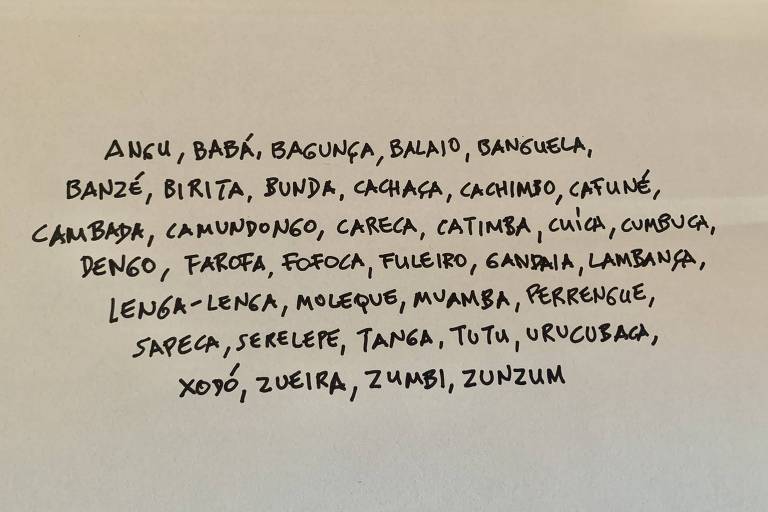 ANGU, BABÁ, BAGUNÇA, BALAIO, BANGUELA,
BANZÉ, BIRITA, BUNDA, CACHAÇA, CACHIMBO, CAFUNÉ,
CAMBADA, CAMUNDONGO, CARECA, CATIMBA, CUÍCA, CUMBUCA,
DENGO, FAROFA, FOFOCA, FULEIRO, GANDAIA, LAMBANÇA,
LENGA-LENGA, MOLEQUE, MUAMBA, PERRENGUE,
SAPECA, SERELEPE, TANGA, TUTU, URUCUBACA,
XODÓ, ZUEIRA, ZUMBI, ZUNZUM